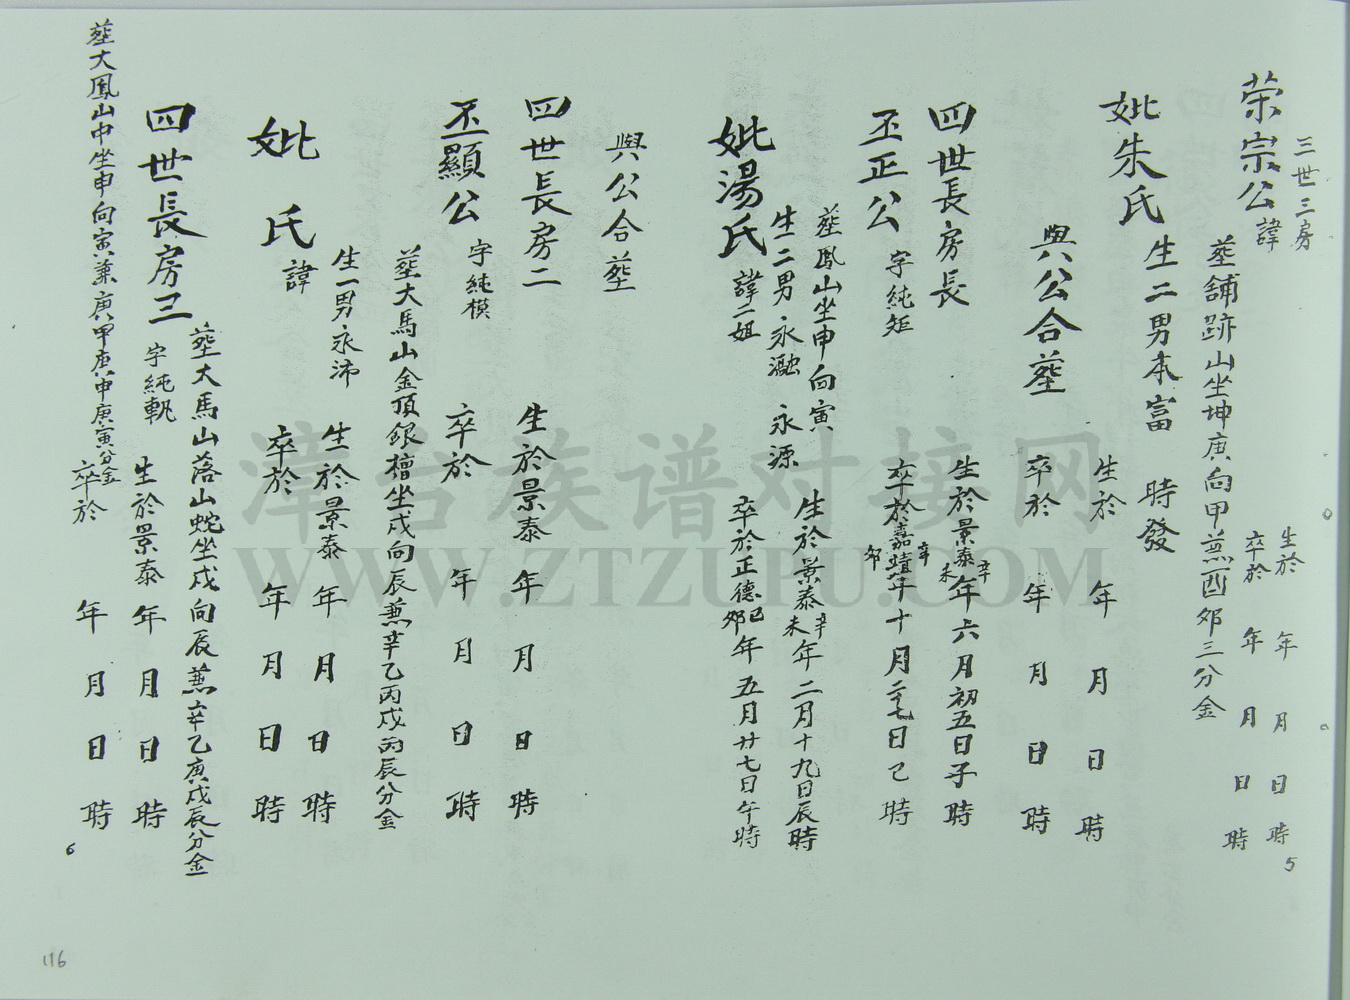 三世三房
榮宗公諱
生於 年 月 日 時
卒於 年 月 日 時
塟舖跡山坐坤庚向甲兼酉夘三分金
妣朱氏
生二男本富 時發
生於 年 月 日 時
與公合塟
卒於 年 月 日 時
四世長房長
生於景泰辛未年六月初五日子時
丕正公 字純矩
卒於嘉靖辛夘年十月二十七日己時
塟鳳山坐申向寅
生二男永瀜 永源
生於景泰辛未年二月十九日辰時
妣湯氏 諱二姐
卒於正德己夘年五月廿七日午時
與公合塟
四世長房二
生於景泰 年 月 日 時
丕顯公 字純模
卒於 年 月 日 時
塟大馬山金頂銀檀坐戍向辰兼辛乙丙戍丙辰分金
生一男永沛
生於景泰 年 月 日 時
妣 氏 諱
卒於 年 月 日 時
塟大馬山落山蛇坐戍向辰兼辛乙庚戍辰分金
四世長房三 字純軏
生於景泰 年 月 日 時
卒於 年 月 日 時
塟大鳳山中坐申向寅兼庚甲庚申庚寅分金
5
6
116
漳台族谱对接网
WWW.ZTZUPU.COM